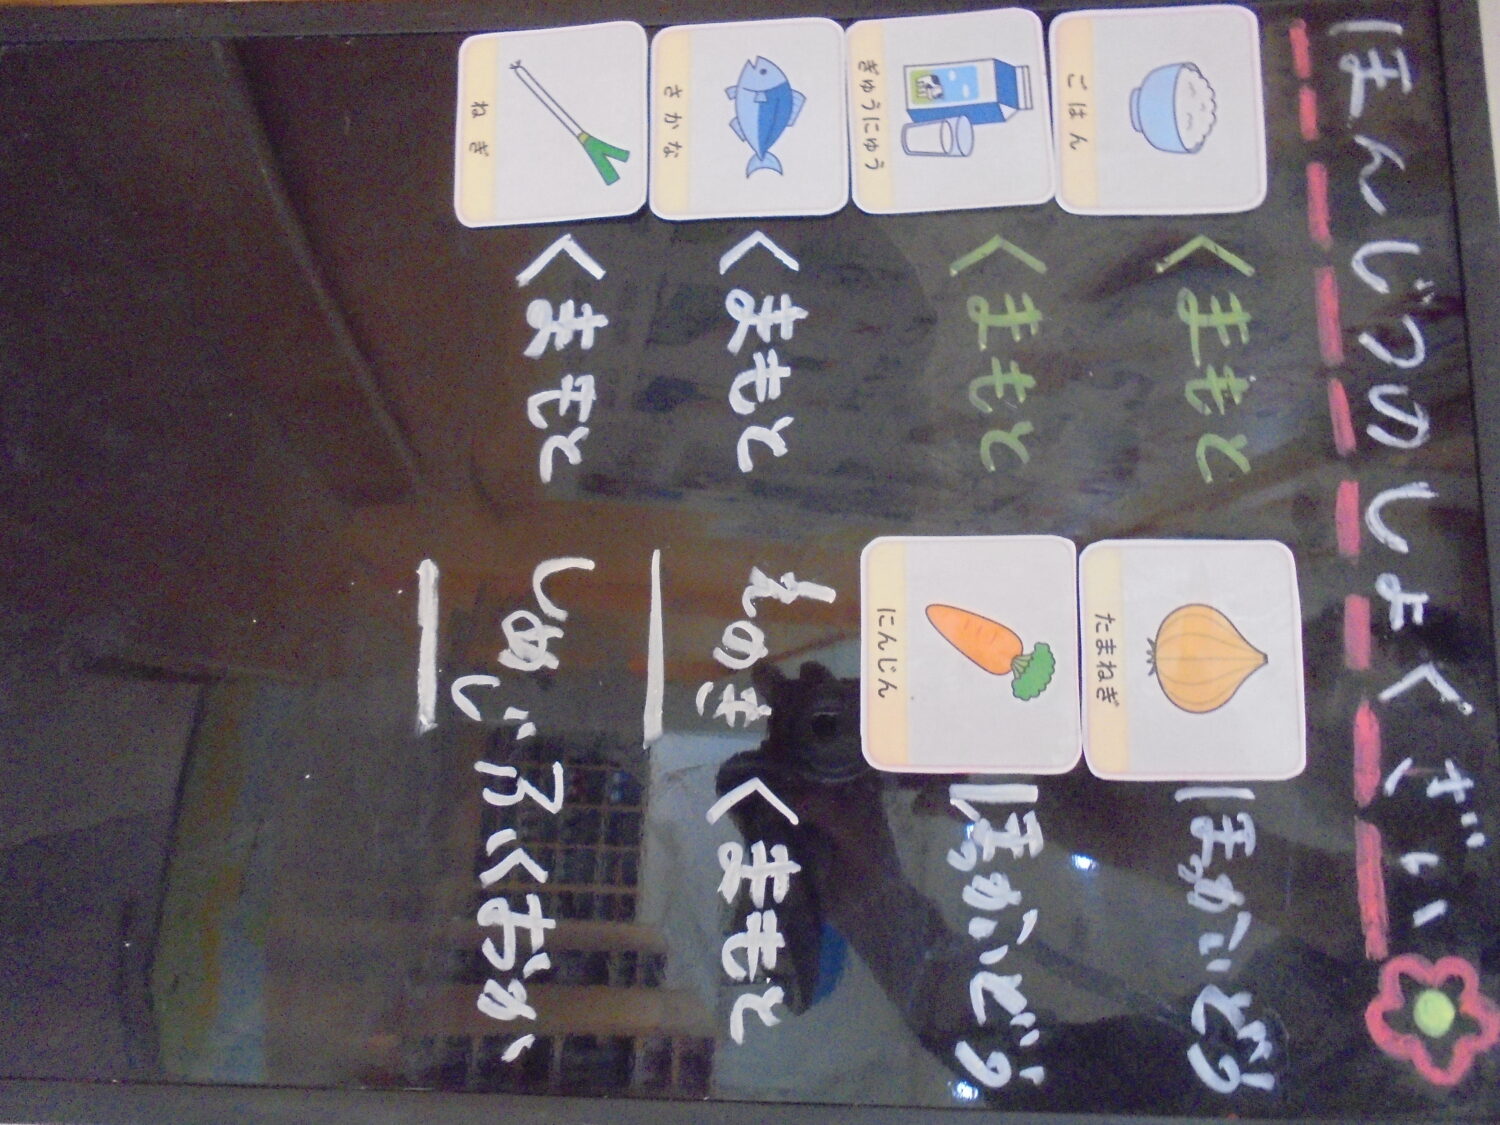 ほんじつのしょくざい
ごはん くまもと
ぎゅうにゅう くまもと
さかな くまもと
ねぎ くまもと
たまねぎ ほっかいどう
にんじん ほっかいどう
えのき くまもと
しめじ ふくおか